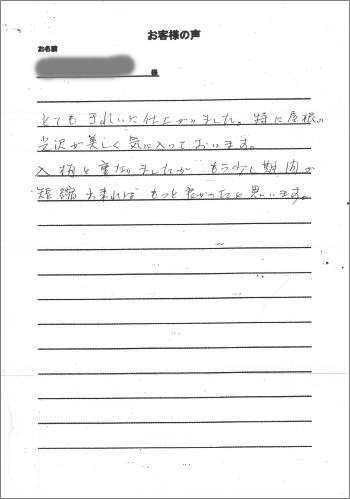 お客様の声
お名前
様
とても きれいに仕上がりました。特に屋根の
光沢が美しく気に入っております。
入梅と重なりましたが もう少し期間が
短縮出来れば もっと良かったと思います。